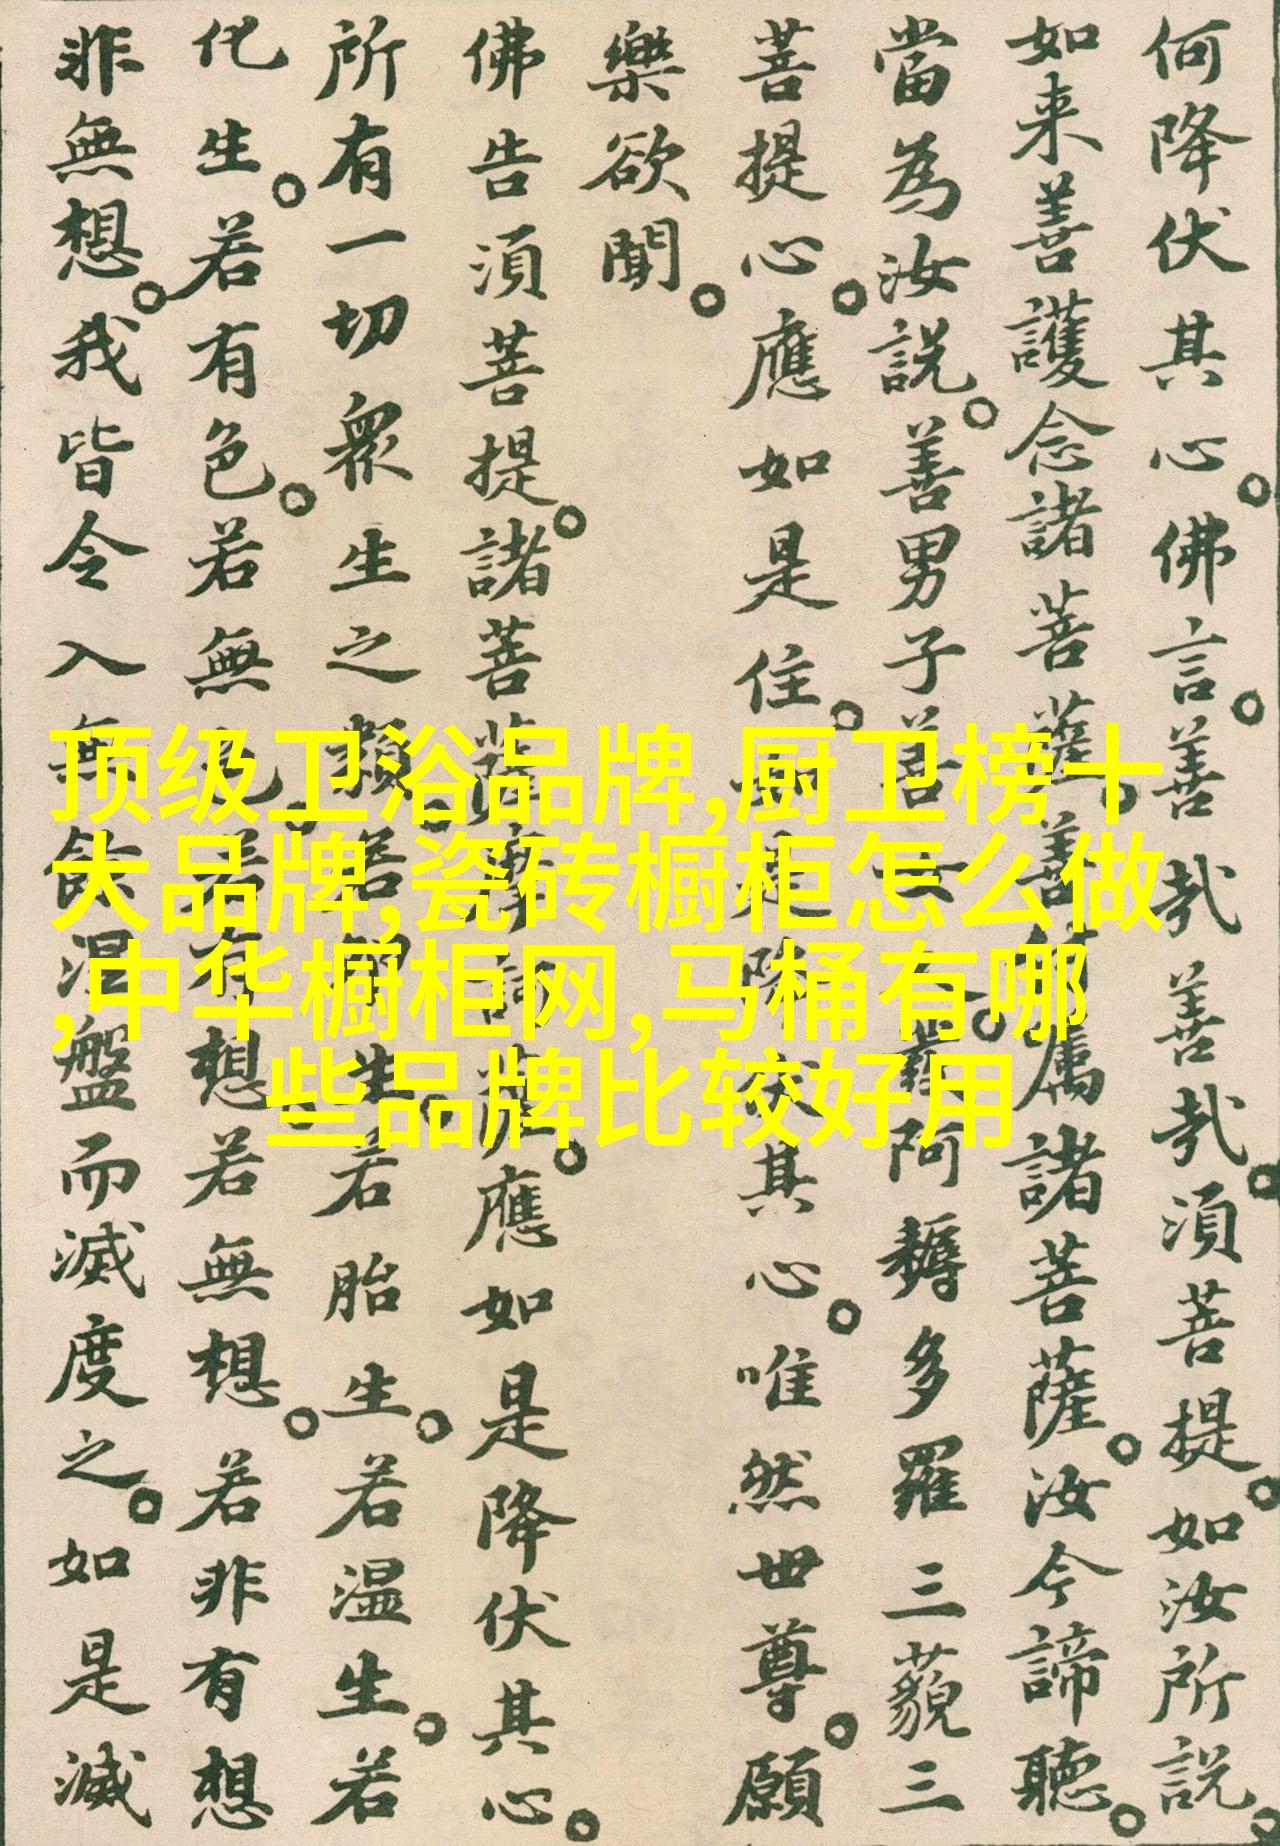 何降伏其心。佛言。善哉善哉。須菩提。如汝所說。
如来善護念諸菩薩。善付屬諸菩薩。汝今諦聽。
當為汝說。善男子善女人。發阿耨多羅三藐三
菩提心。應如是住。如是降伏其心。唯然世尊。願
樂欲聞。
佛告須菩提。諸菩薩摩訶薩。應如是降伏其心。
所有一切衆生之類。若卵生。若胎生。若温生。若
化生。若有色。若無色。若有想。若無想。若非有想
非無想。我皆令入無餘涅盤而滅度之。如是滅
顶级卫浴品牌,厨卫榜十
大品牌,瓷砖橱柜怎么做
,中华橱柜网,马桶有哪
些品牌比较好用